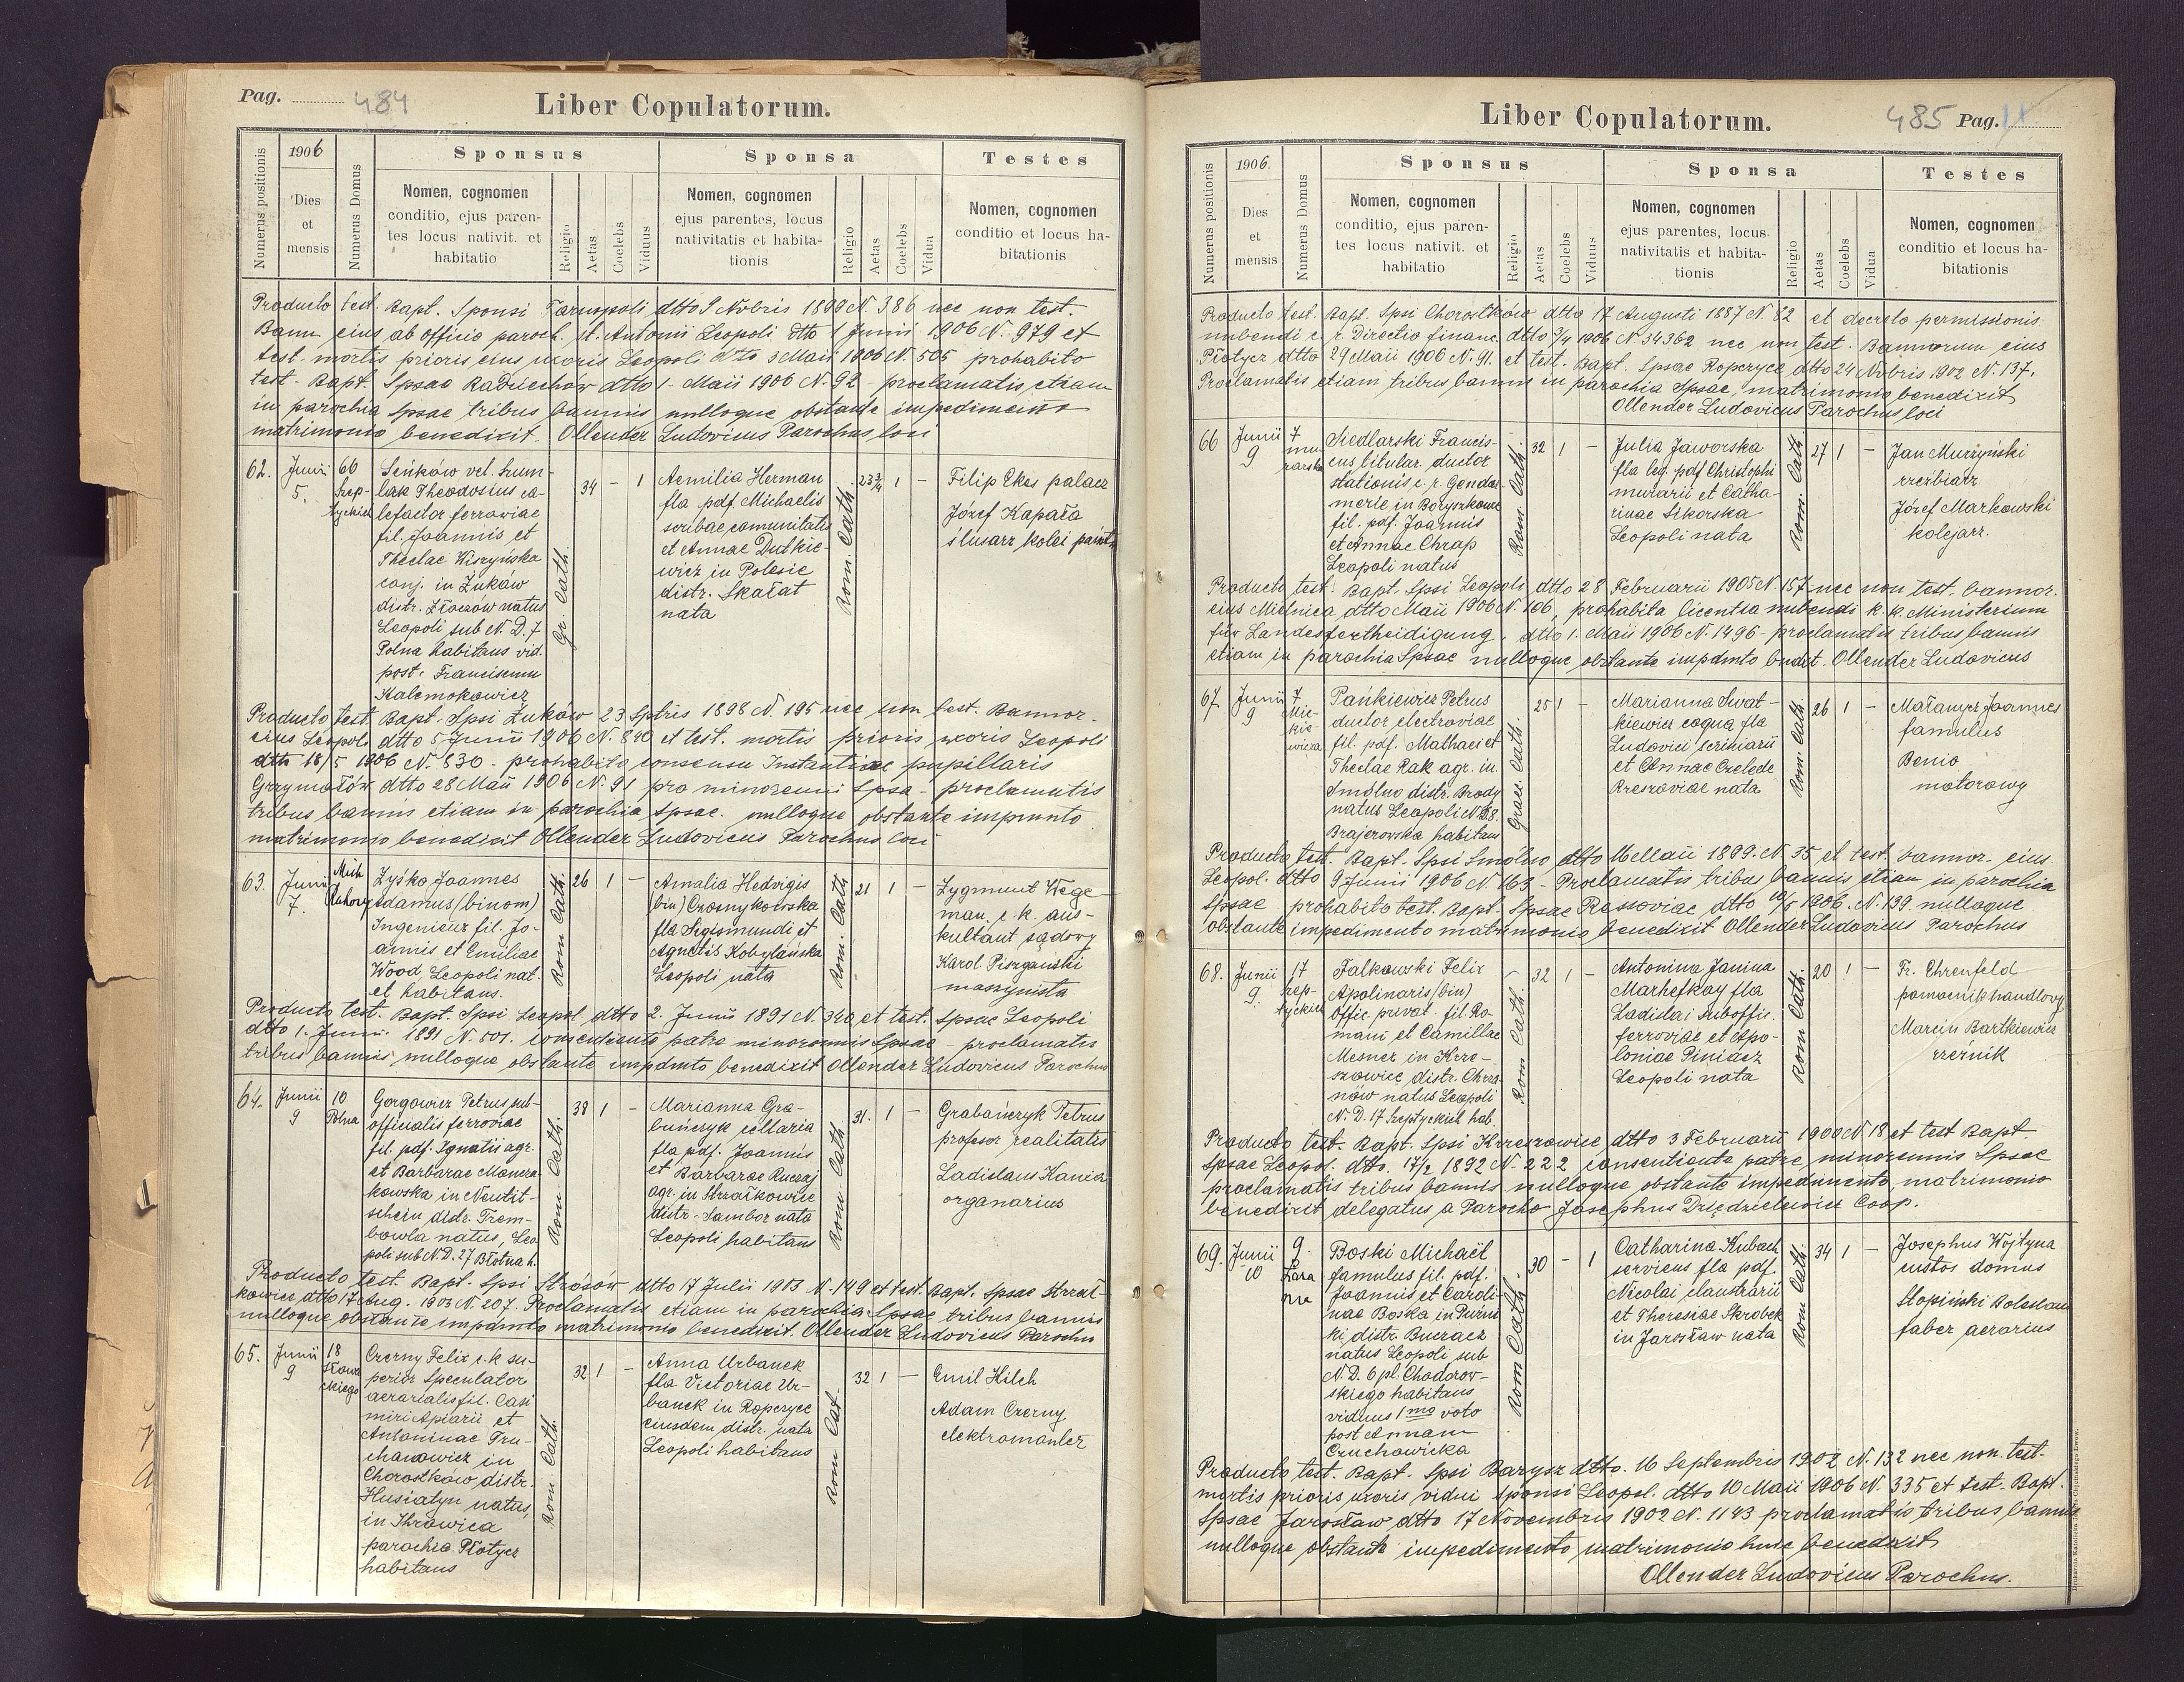 Pag. 484
Liber Copulatorum.
Numerus positionis
1906
Dies
et
mensis
Numerus Domus
Sponsus
Nomen, cognomen
conditio, ejus paren-
tes locus nativit. et
habitatio
Religio
Aetas
Coelebs
Viduus
Sponsa
Nomen, cognomen
ejus parentes, locus
nativitatis et habita-
tionis
Religio
Aetas
Coelebs
Vidua
Testes
Nomen, cognomen
conditio et locus ha-
bitationis
Producto test. Bapt. Sponsi Tarnopoli dtto Nvbris 1899 N. 386 nec non test.
Bann eius ab officio paroch. st. Antonii Leopoli dtto 1 Junii 1906 N. 979 et
test. mortis prioris eius uxoris Leopoli dtto 3 Maii 1906 N. 505 prohabito
test. Bapt. Spsae Radziechów dtto 1. Maii 1906 N. 92 - proclamatis etiam
in parochia Spsae tribus bannis nulloque obstante impedimento
matrimonio benedixit. Ollender Ludovicus Parochus loci
62.
Junii
5.
66
Szep-
tyckich
Seńków vel. Szum-
lak Theodosius ca-
lefactor ferroviae
fil. Joannis et
Theclae Wiszyńska
conj. in Żuków
distr. Złoczów natus
Leopoli sub N. D. 7
Polna habitans vid.
post. Franciscum
Kalemokowicz
Gr. Cath.
34 - 1
Aemilia Herman
fla pdf. Michaelis
scribae comunitatis
et Annae Dutkie-
wicz in Polesie
distr. Skałat
nata
Rom. Cath.
23 3/4 1 -
Filip Ekes palacz
Józef Kapała
ślusarz kolei państw
Producto test. Bapt. Spsi Żuków 23 Sptris 1898 N. 195 nec non test. Bannor.
eius Leopoli dtto 5 Junii 1906 N. 840 et test. mortis prioris uxoris Leopoli
dtto 18/5 1906 N. 830 - prohabito consensu Instantiae pupillaris
Grzymałów dtto 28 Maii 1906 N. 91 pro minorenni Spsa - proclamatis
tribus bannis etiam in parochia Spsae. nulloque obstante impmnto
matrimonio benedixit Ollender Ludovicus Parochus loci
63.
Junii
7.
Zyśko Joannes
Adamus (binom)
Ingenieur fil. Jo-
annis et Emiliae
Wood Leopoli nat.
et habitans.
Rom Cath.
26 1 -
Amalia Hedvigis
(bin) Czosnykowska
fla Sigismundi et
Agnetis Kobylańska
Leopoli nata
Rom. Cath
21 1 -
Zygmunt Wege-
man. c. k. aus-
kultant sądowy
Karol Piszgański
maszynista
Producto test. Bapt. Spsi Leopol. dtto 2. Junii 1891 N. 340 et test. Spsae Leopoli
dtto 1. Junii. 1891 N. 501. consentiente patre minorennis Spsae - proclamatis
tribus bannis nulloque obstante impdmto benedixit Ollender Ludovicus Parochus
64.
Junii
9
10
Polna
Gorgowicz Petrus sub-
officialis ferroviae
fil. pdf. Ignatii agr.
et Barbarae Mancza-
kowska in Neutit-
schein distr. Trem-
bowla natus, Leo
poli sub N. D. 27 Błotna h.
Rom Cath.
38 1 -
Marianna Gra-
bańczyk cellaria
fla pdf. Joannis
et Barbarae Ruczaj
agr. in Strzałkowice
distr. Sambor nata
Leopoli habitans
Rom. Cath
31. 1 -
Grabańczyk Petrus
profesor realitatis
Ladislaus Kania
organarius
Producto test. Bapt. Spsi Strósów dtto 17 Julii 1903 N. 149 et test. Bapt. Spsae Strzał-
kowice dtto 17 Aug. 1903 N. 207. Proclamatis etiam in parochia Spsae tribus bannis
nulloque obstante impdmto matrimonio benedixit. Ollender Ludovicus Parochus
65.
Junii
9
18
Słowa
ckiego
Czerny Felix c. k su-
perior speculator
aerarialis fil. Casi
miri Apiarii et
Antoninae Tru-
chanowicz in
Chorostków distr.
Husiatyn natus,
in Ihrowica
parochia Płotycz
habitans
Rom. Cath.
32 1 -
Anna Urbanek
fla Victoriae Ur-
banek in Ropczyce
eiusdem distr. nata
Leopoli habitans
Rom Cat.
32 1 -
Emil Hilch
Adam Czerny
elektromonter
Liber Copulatorum.
485 Pag.
Numerus positionis
1906.
Dies
et
mensis
Numerus Domus
Sponsus
Nomen, cognomen
conditio, ejus paren-
tes locus nativit. et
habitatio
Religio
Aetas
Coelebs
Viduus
Sponsa
Nomen, cognomen
ejus parentes, locus
nativitatis et habita-
tionis
Religio
Aetas
Coelebs
Vidua
Testes
Nomen, cognomen
conditio et locus ha-
bitationis
Producto test. Bapt. Spsi Chorostków dtto 17 Augusti 1887 N. 82 et decreto permissionis
nubendi c. r. Directio financ. dtto 3/4 1906 N. 34362 nec non test. Bannorum eius
Płotycz dtto 29 Maii 1906 N. 91. et test. Bapt. Spsae Ropczyce dtto 24 Nvbris 1902 N. 137.
Proclamatis etiam tribus bannis in parochia Spsae, matrimonio benedixit
Ollender Ludovicus Parochus loci
66
Junii
9
7
mu-
rarska
Siedlarski Francis-
cus titular. ductor
stationis c. r. Gendar
merie in Boryszkowce
fil. pdf. Joannis
et Annae Chrap
Leopoli natus
Rom. Cath.
32 1 -
Julia Jaworska
fla leg. pdf Christophi
murarii et Catha-
rinae Sikorska
Leopoli nata
Rom. Cath.
27 1 -
Jan Murzyński
rzeźbiarz
Józef Markowski
kolejarz.
Producto test. Bapt. Spsi Leopoli dtto 28 Februarii 1905 N. 157 nec non test. bannor.
eius Mielnica dtto Maii 1906 N. 106, prohabita licentia nubendi k. k. Ministerium
für Landesfertheidigung. dtto 1. Maii 1906 N. 1496 - proclamatis tribus bannis
etiam in parochia Spsae nulloque obstante impdmto bndxt. Ollender Ludovicus
67.
Junii
9
7
Mic-
kie
wicza
Pańkiewicz Petrus
ductor electroviae
fil. pdf. Mathaei et
Theclae Rak agr. in
Smólno distr. Brody
natus Leopoli N. 68.
Brajerowska habitans
Graeci Cath.
25 1 -
Marianna Swat-
kiewicz coqua fla
Ludovici scriniarii
et Annae Czelede
Rzeszoviae nata
Rom. Cath.
26 1 -
Małanycz Joannes
famulus
Benio
motorowy
Producto test. Bapt. Spsi Smólno dtto 16 Maii 1899. N. 35 et test. bannor. eius.
Leopol. dtto 9 Junii 1906 N. 163 - Proclamatis tribus bannis etiam in parochia
Spsae prohabito test. Bapt. Spsae Ressoviae dtto 10/5 1906. N. 139 nulloque
obstante impedimento matrimonio benedixit Ollender Ludovicus Parochus
68.
Junii
9.
17
Szep-
tyckich
Falkowski Felix
Apolinaris (bin)
offic. privat. fil. Ro-
mani et Camillae
Mesner in Krze-
szowice distr. Chrza-
nów natus Leopoli
N. D. 17 Szeptyckich hab.
Rom Cath.
32 1 -
Antonina Janina
Marhefkay fla
Ladislai suboffic.
ferroviae et Apo-
loniae Piniasz
Leopoli nata
Rom Cath.
20 1 -
Fr. Ehrenfeld
pomocnik handlowy
Marcin Bartkiewicz
rzeźnik
Producto test. Bapt. Spsi Krzeszowice dtto 3 Februarii 1900 N 18 et test Bapt.
Spsae Leopol. dtto. 17/2 1892 N. 222 consentiente patre minorennis Spsae
proclamatis tribus bannis nulloque obstante impedimento matrimonio
benedixit delegatus a Parocho Josephus Dziędzielewicz Coop.
69.
Junii
10
9.
Boski Michaël
famulus fil. pdf.
Joannis et Caroli-
nae Boska in
distr. Buczacz
natus Leopoli sub
N. D. 6 pl. Chodorow-
skiego habitans
viduus 1 mo voto
post Annam
Czuchowicka
Rom Cath.
30 - 1
Catharina Kubach
serviens fla pdf.
Nicolai claustrarii
et Theresiae Skrobek
in Jarosław nata
Rom Cath.
34 1 -
Josephus Wojtyna
custos domus
Stopiński Boleslaus
faber aerarius
Producto test. Bapt. Spsi Barysz dtto. 16 Septembris 1902 N. 132 nec non test.
mortis prioris uxoris vidui sponsi Leopol. dtto 10 Maii 1906 N. 335 et test. Bapt.
Spsae Jarosław dtto 17 Novembris 1902 N. 1143 proclamatis tribus bannis
nulloque obstante impedimento matrimonio huic benedixit
Ollender Ludovicus Parochus.